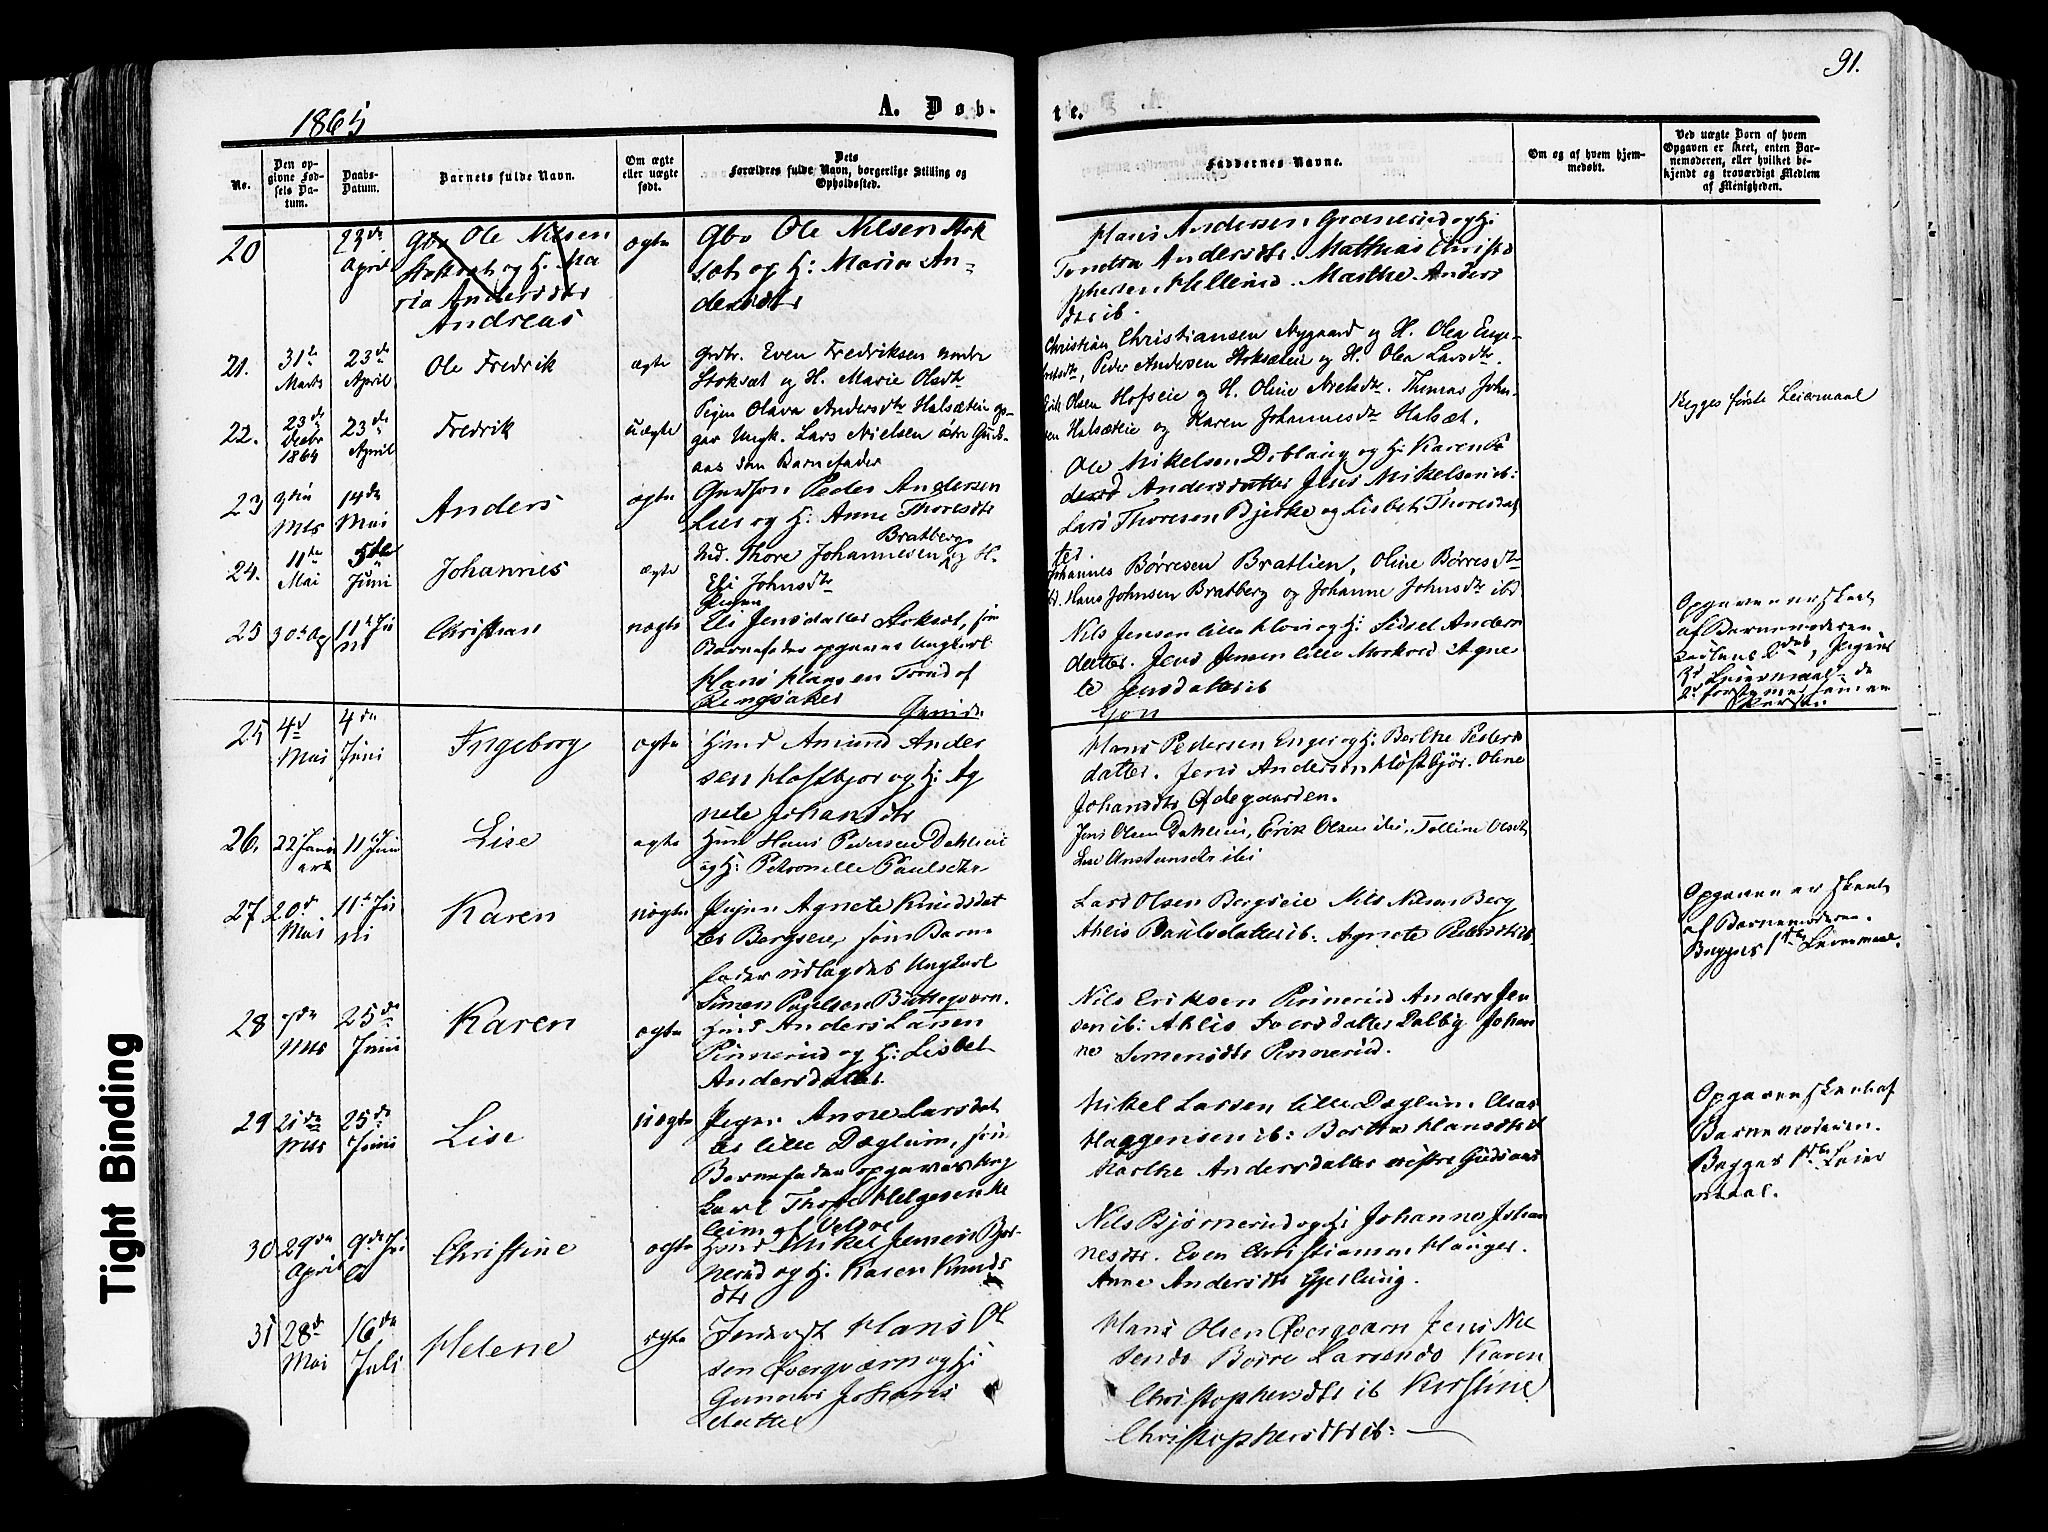 91.
1865
A. Døb-
te.
No.
Den op-
givne Fød-
sels Da-
tum.
Daabs-
Datum.
Barnets fulde Navn.
Om ægte
eller uægte
født.
Dets
Forældres fulde Navn, borgerlige Stilling og
Opholdssted.
Faddernes Navne.
Om og af hvem hjem-
medøbt.
Ved uægte Børn af hvem
Opgaven er skeet, enten Bar-
nemoderen, eller hvilket be-
kjendt og troværdigt Medlem
af Menigheden.
20
23de
April
Gbr Ole Nilsen
Stoksæt og H: Ma
ria Andersdtr
Andreas
ægte
Gbr Ole Nilsen Stok
sæt og H: Maria An-
dersdtr
Hans Andersen Granerud og H:
Andersdtr. Mathias Christo
phersen Hellerud. Marthe Anders
dtr ib.
21.
31te
Marts
23de
April
Ole Fredrik
ægte
Even Fredriksen
Stoksæt og H. Marie Olsdtr
Christian Christiansen Nygaard og H. Olea Enge-
bretsdtr, Peder Andersen Stoksæteie og H. Olea Larsdtr
Erik Olsen Hofseie og H. Oline Axelsdtr. Thomas Johan-
22.
23de
Decbr
1864
23de
April
Fredrik
uægte
Pigen Olava Andersdtr Halsæteie op-
gav Ungk. Lars Nielsen østre Guds-
aas som Barnefader
sen Halsæteie og Karen Johannesdtr Halsæt.
Begges første Leiermaal
23
3die
Mts
14de
Mai
Anders
ægte
Peder Andersen
Lier og H: Anne Thoresdtr
Ole Mikelsen Deblang og H: Karen Pe
dersd Andersdatter Jens Mikelsen ib:
Lars Thoresen Bjerke og Lisbet Thoresdat
ter.
24.
11te
Mai
5te
Juni
Johannes
ægte
Bratberg
Ind. Thore Johannesen og H.
Eli Johnsdtr
Johannes Børresen Bratlien, Oline Børresdtr
ib. Hans Johnsen Bratberg og Johanne Johnsdtr ibd
25
30te Ap
11te Ju
ni
Christian
uægte
Pigen
Eli Jensdatter Stoksæt, som
Barnefader opgaves Ungkarl
Hans Hagen Trond af
Ringsaker
Nils Jensen lille Kloie og H: Sidsel Anders
datter. Jens Jensen lille Morkved Agne
te Jensdatter ib
Opgaven er skeet
af Barnemoderen
Karlens 2det, Pigens
3d Leiermaal de
2de første med samme
Person
25
4d
Mai
4de
Juni
Ingeborg
ægte
Hmd Amund Ander
sen Høstbjør og H: Ag
nete Johansdtr
Hans Pedersen Enger og H: Berthe Peders
datter. Jens Andersen Høstbjør. Oline
Johansdtr Ødegaarden.
26.
22 Janu
ar
11te Juni
Lise
ægte
Hmd Hans Pedersen Dahleie
og H: Petronelle Paulsdtr
Jens Olsen Dahleie, Erik Olsen ibi, Polline Olsdtr
Lise Anstensdtr ibi
27
20d
Mai
11te Ju
ni
Karen
uægte
Pigen Agnete Knudsdat
ter Bergseie, som Barne
fader udlagdes Ungkarl
Simen Paulsen Butteqvarn.
Lars Olsen Bergseie Nils Nilsen Berg
Ahlis Paulsdatter ib: Agnete Pedersdtr ib
Opgaven er skeet
af Barnemoderen.
Begges 1ste Leiermaal.
28
7de
Mts
25de
Juni
Karen
ægte
Hmd Anders Larsen
Pinnerud og H: Lisbet
Andersdatter.
Nils Eriksen Pinnerud Anders Jen
sen ib: Ahlis Iversdatter Dalby Johan
ne Simensdtr Pinnerud.
29
25de
Mts
25de
Juni
Lise
uægte
Pigen Anne Larsdat
ter lille Dæhlum, som
Barnefader opgaves Ung
karl Thore Helgesen
af Velsve
Mikel Larsen lille Dæhlum. Claus
Haagensen ib: Berthe Hansdtr ib
Marthe Andersdatter vestre Gudsaas
Opgaven skeet af
Barnemoderen.
Begges 1ste Leier
maal.
30
29de
April
9de Ju
li
Christine
ægte
Hmd Mikel Jensen Bjør-
nerud og H: Karen Knuds
dtr
Nils Bjørnerud og H: Johanne Johan
nesdtr. Even Christiansen Hauger.
Anne Andersdtr Gjesling.
31
28d
Mai
16de
Juli
Helene
ægte
Inderst Hans Ol
sen Øverqværn og H:
Gunner Johans
datter
Hans Olsen Øverqværn Jens Nil
sen do Børre Larsen do Karen
Christophersdtr ib Kirstine
Christophersdtr ib:
Tight Binding